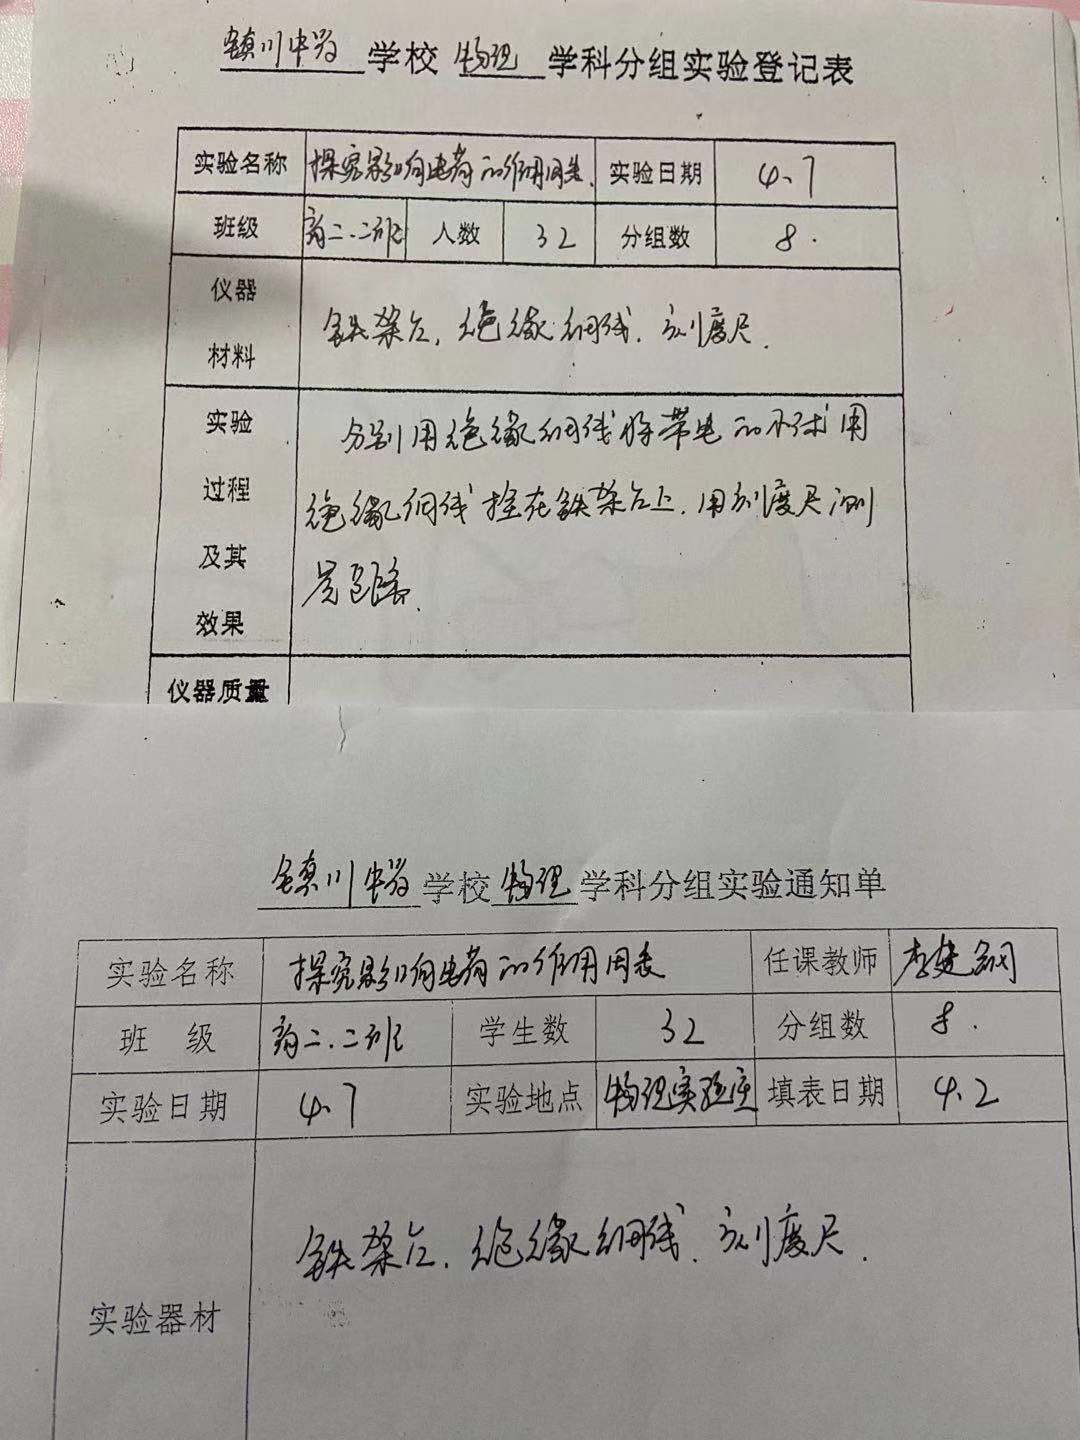 镇川中学 学校 物理 学科分组实验登记表
实验名称 探究影响电荷的作用因素. 实验日期 4.7
班级 高二.二班 人数 32 分组数 8.
仪器材料 铁架台, 绝缘细线, 刻度尺.
实验过程及其效果
分别用绝缘细线将带电的小球用
绝缘细线拴在铁架台上, 用刻度尺测
量距离.
仪器质量
镇川中学 学校 物理 学科分组实验通知单
实验名称 探究影响电荷的作用因素 任课教师 李建
班级 高二.二班 学生数 32 分组数 8.
实验日期 4.7 实验地点 物理实验室 填表日期 4.2
实验器材 铁架台, 绝缘细线, 刻度尺.